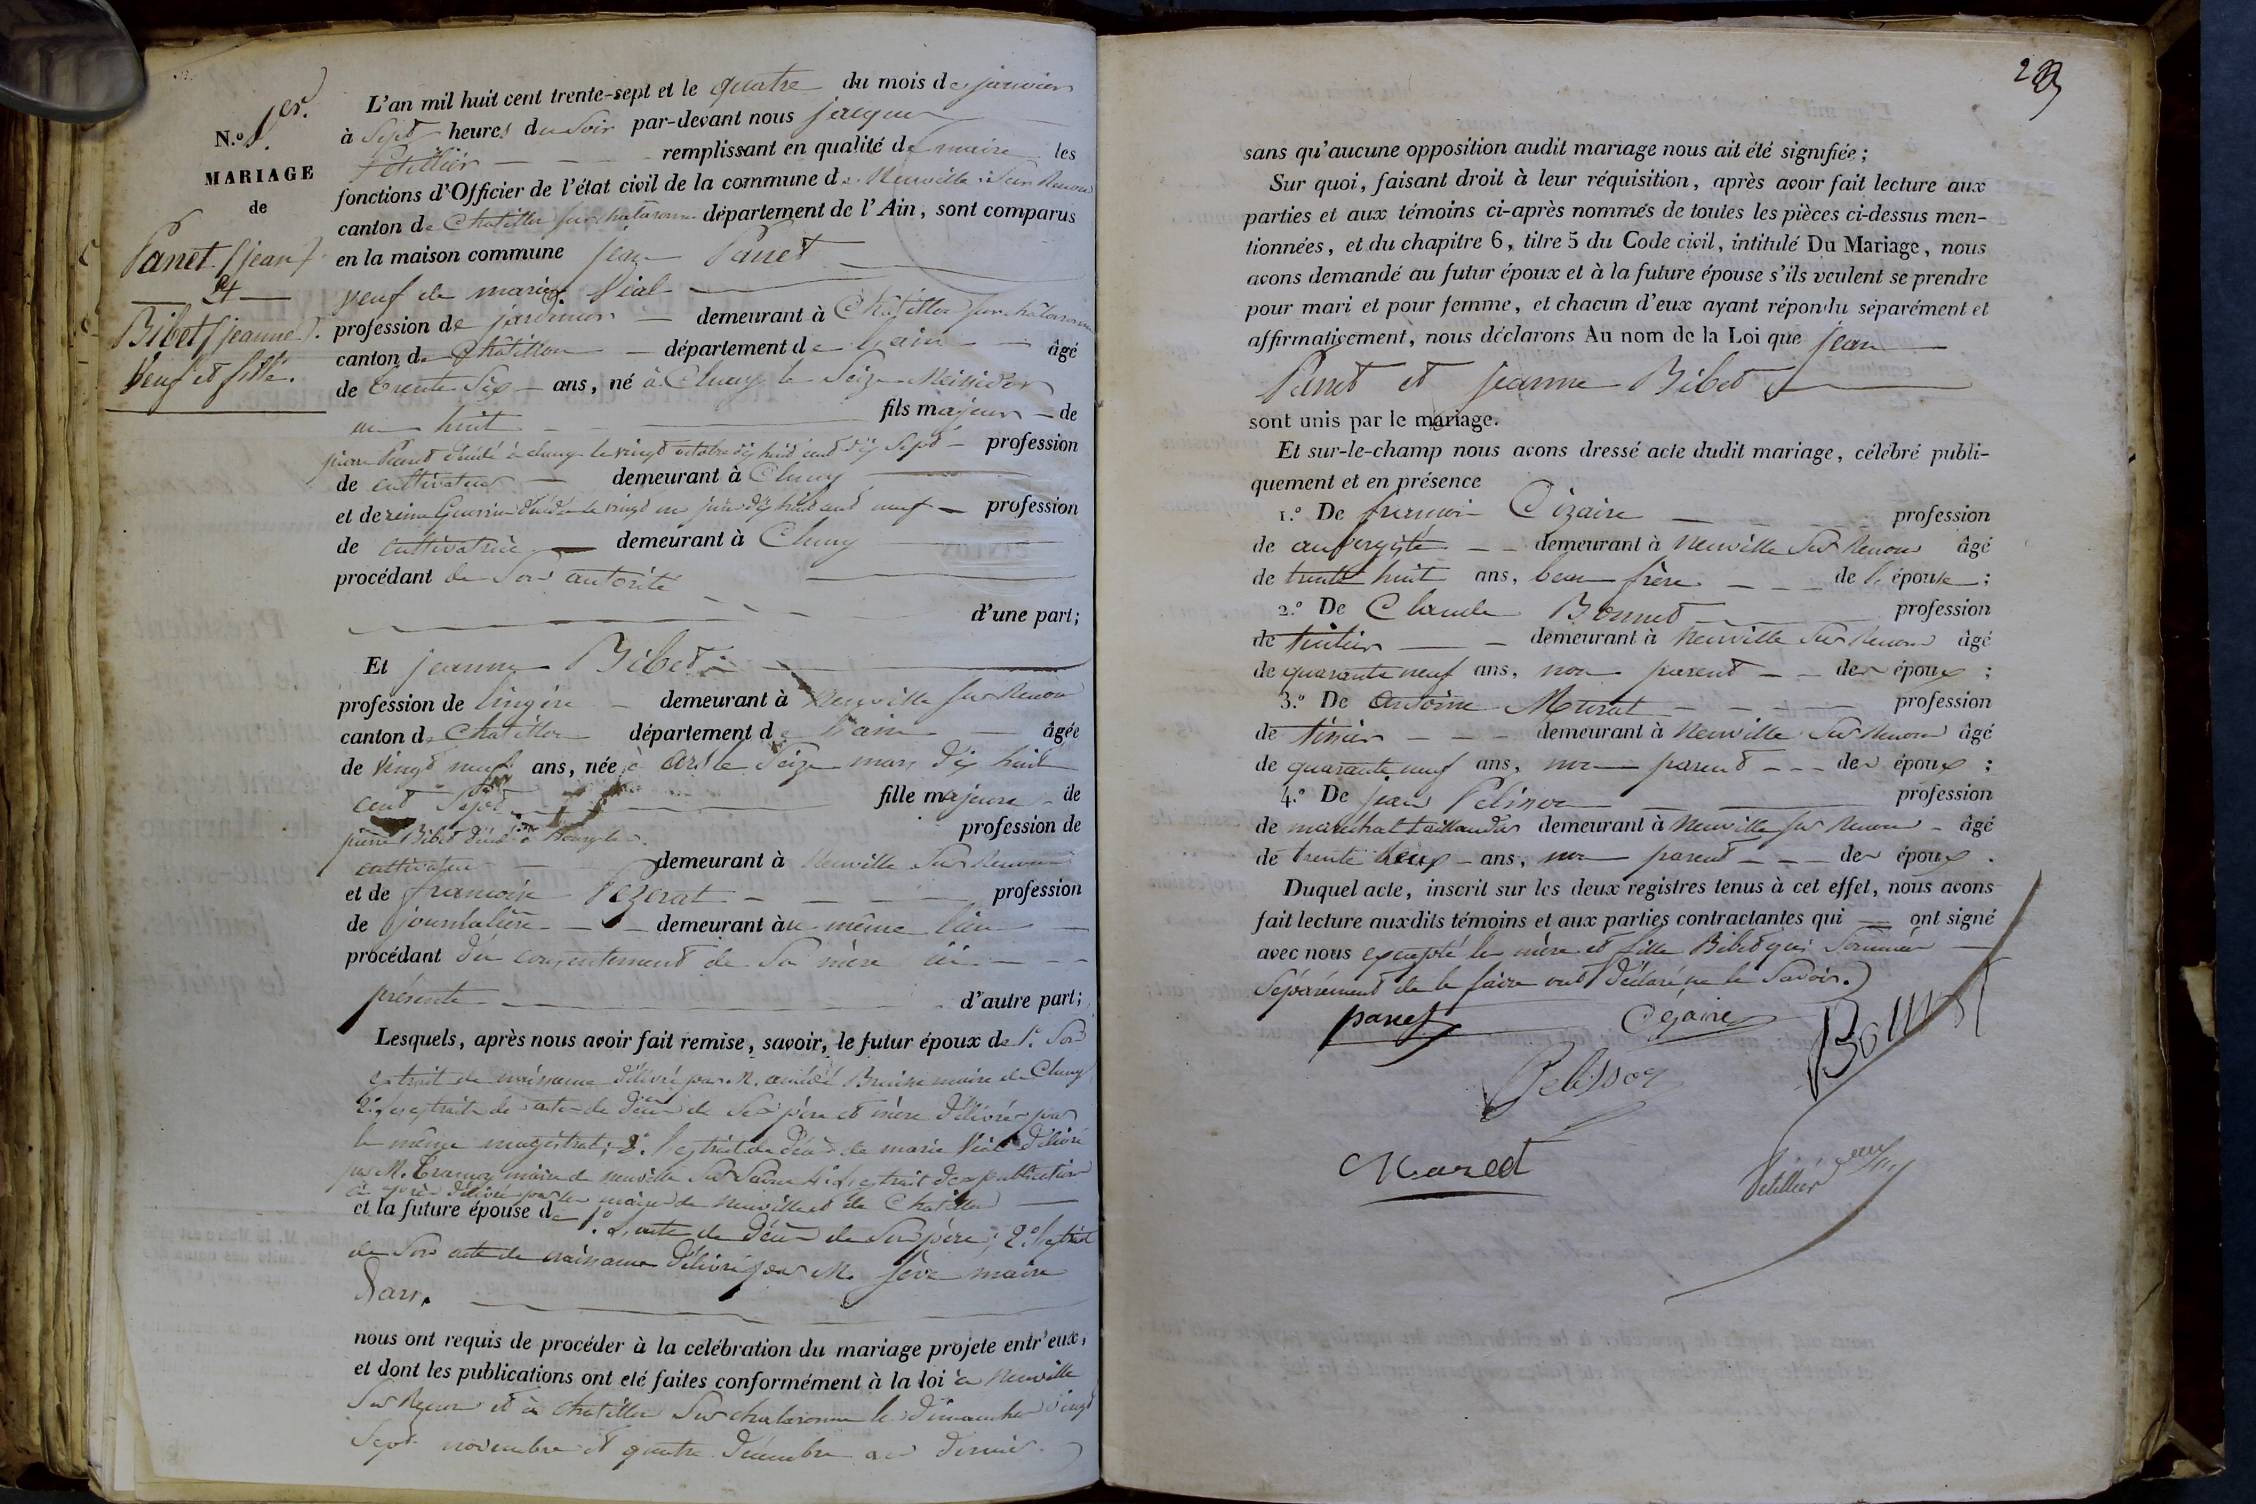 N.o 1er.
MARIAGE
de
Panet (jean)
et
Bibet (jeanne).
Veuf et fille.
L'an mil huit cent trente-sept et le quatre du mois de janvier
à Sept heures du Soir par-devant nous jacques
remplissant en qualité de maire les
fonctions d'Officier de l'état civil de la commune de Neuville Sur Renon
canton de Chatillon sur chalaronne département de l'Ain, sont comparus
en la maison commune jean Panet
veuf de marie Vial
profession de demeurant à Châtillon sur chalaronne
canton de Châtillon département de l'ain âgé
de trente Six ans, né à Cluny le Seize Messidor
an huit fils majeur de
pierre Panet décédé à cluny le vingt octobre dix huit cent dix Sept profession
de cultivateur demeurant à Cluny
et de reine décédée le vingt un juin dix huit cent neuf profession
de cultivatrice demeurant à Cluny
procédant de Son autorité
d'une part;
Et jeanne Bibet
profession de lingère demeurant à Neuville Sur Renon
canton de Chatillon département de l'ain âgée
de vingt neuf ans, née à ars le Seize mars dix huit
cent Sept fille majeure de
pierre Bibet profession de
cultivateur demeurant à Neuville Sur Renon
et de francoise Pezerat profession
de journalière demeurant au même lieu
procédant du consentement de Sa mère ici
présente d'autre part;
Lesquels, après nous avoir fait remise, savoir, le futur époux de 1.o Son
extrait de naissance délivré par M. maire de Cluny
2.o les extraits de actes de décès de Ses père et mère délivrés par
le même magistrat; 3.o l'extrait de décès de marie Vial délivré
par M. maire de neuville Sur Saône 4.o l'extrait des publications
ci après délivré par les maires de Neuville et de Chatillon
et la future épouse de 1.o L'acte de décès de Son père; 2.o l'extrait
de Son acte de naissance délivré par M. Sève maire
d'ars.
nous ont requis de procéder à la célébration du mariage projeté entr'eux,
et dont les publications ont été faites conformément à la loi à Neuville
Sur Renon et à Chatillon Sur chalaronne les dimanches vingt
Sept novembre et quatre décembre an dernier.
sans qu'aucune opposition audit mariage nous ait été signifiée;
Sur quoi, faisant droit à leur réquisition, après avoir fait lecture aux
parties et aux témoins ci-après nommés de toutes les pièces ci-dessus men-
tionnées, et du chapitre 6, titre 5 du Code civil, intitulé Du Mariage, nous
avons demandé au futur époux et à la future épouse s'ils veulent se prendre
pour mari et pour femme, et chacun d'eux ayant répondu séparément et
affirmativement, nous déclarons Au nom de la Loi que jean
Panet et jeanne Bibet
sont unis par le mariage.
Et sur-le-champ nous avons dressé acte dudit mariage, célébré publi-
quement et en présence
1.o De francois Cizaire profession
de aubergiste demeurant à Neuville Sur Renon âgé
de trente huit ans, beau frère de l'épouse;
2.o De Claude Bonnet profession
de demeurant à Neuville Sur Renon âgé
de quarante neuf ans, non parent des époux;
3.o De antoine profession
de demeurant à Neuville Sur Renon âgé
de quarante neuf ans, non parent des époux;
4.o De jean Pelisson profession
de maréchal taillandier demeurant à Neuville Sur Renon âgé
de trente deux ans, non parent des époux.
Duquel acte, inscrit sur les deux registres tenus à cet effet, nous avons
fait lecture auxdits témoins et aux parties contractantes qui ont signé
avec nous excepté les mère et fille Bibet qui Sommées
Séparément de le faire ont déclaré ne le Savoir.
panet
Bonnet
Pelisson